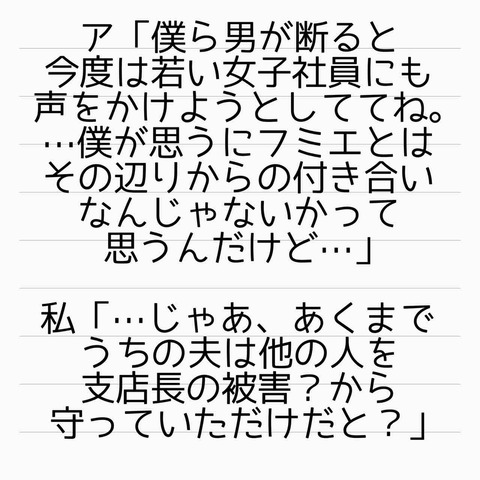 ア「僕ら男が断ると
今度は若い女子社員にも
声をかけようとしててね。
…僕が思うにフミエとは
その辺りからの付き合い
なんじゃないかって
思うんだけど…」
私「…じゃあ、あくまで
うちの夫は他の人を
支店長の被害？から
守っていただけだと？」